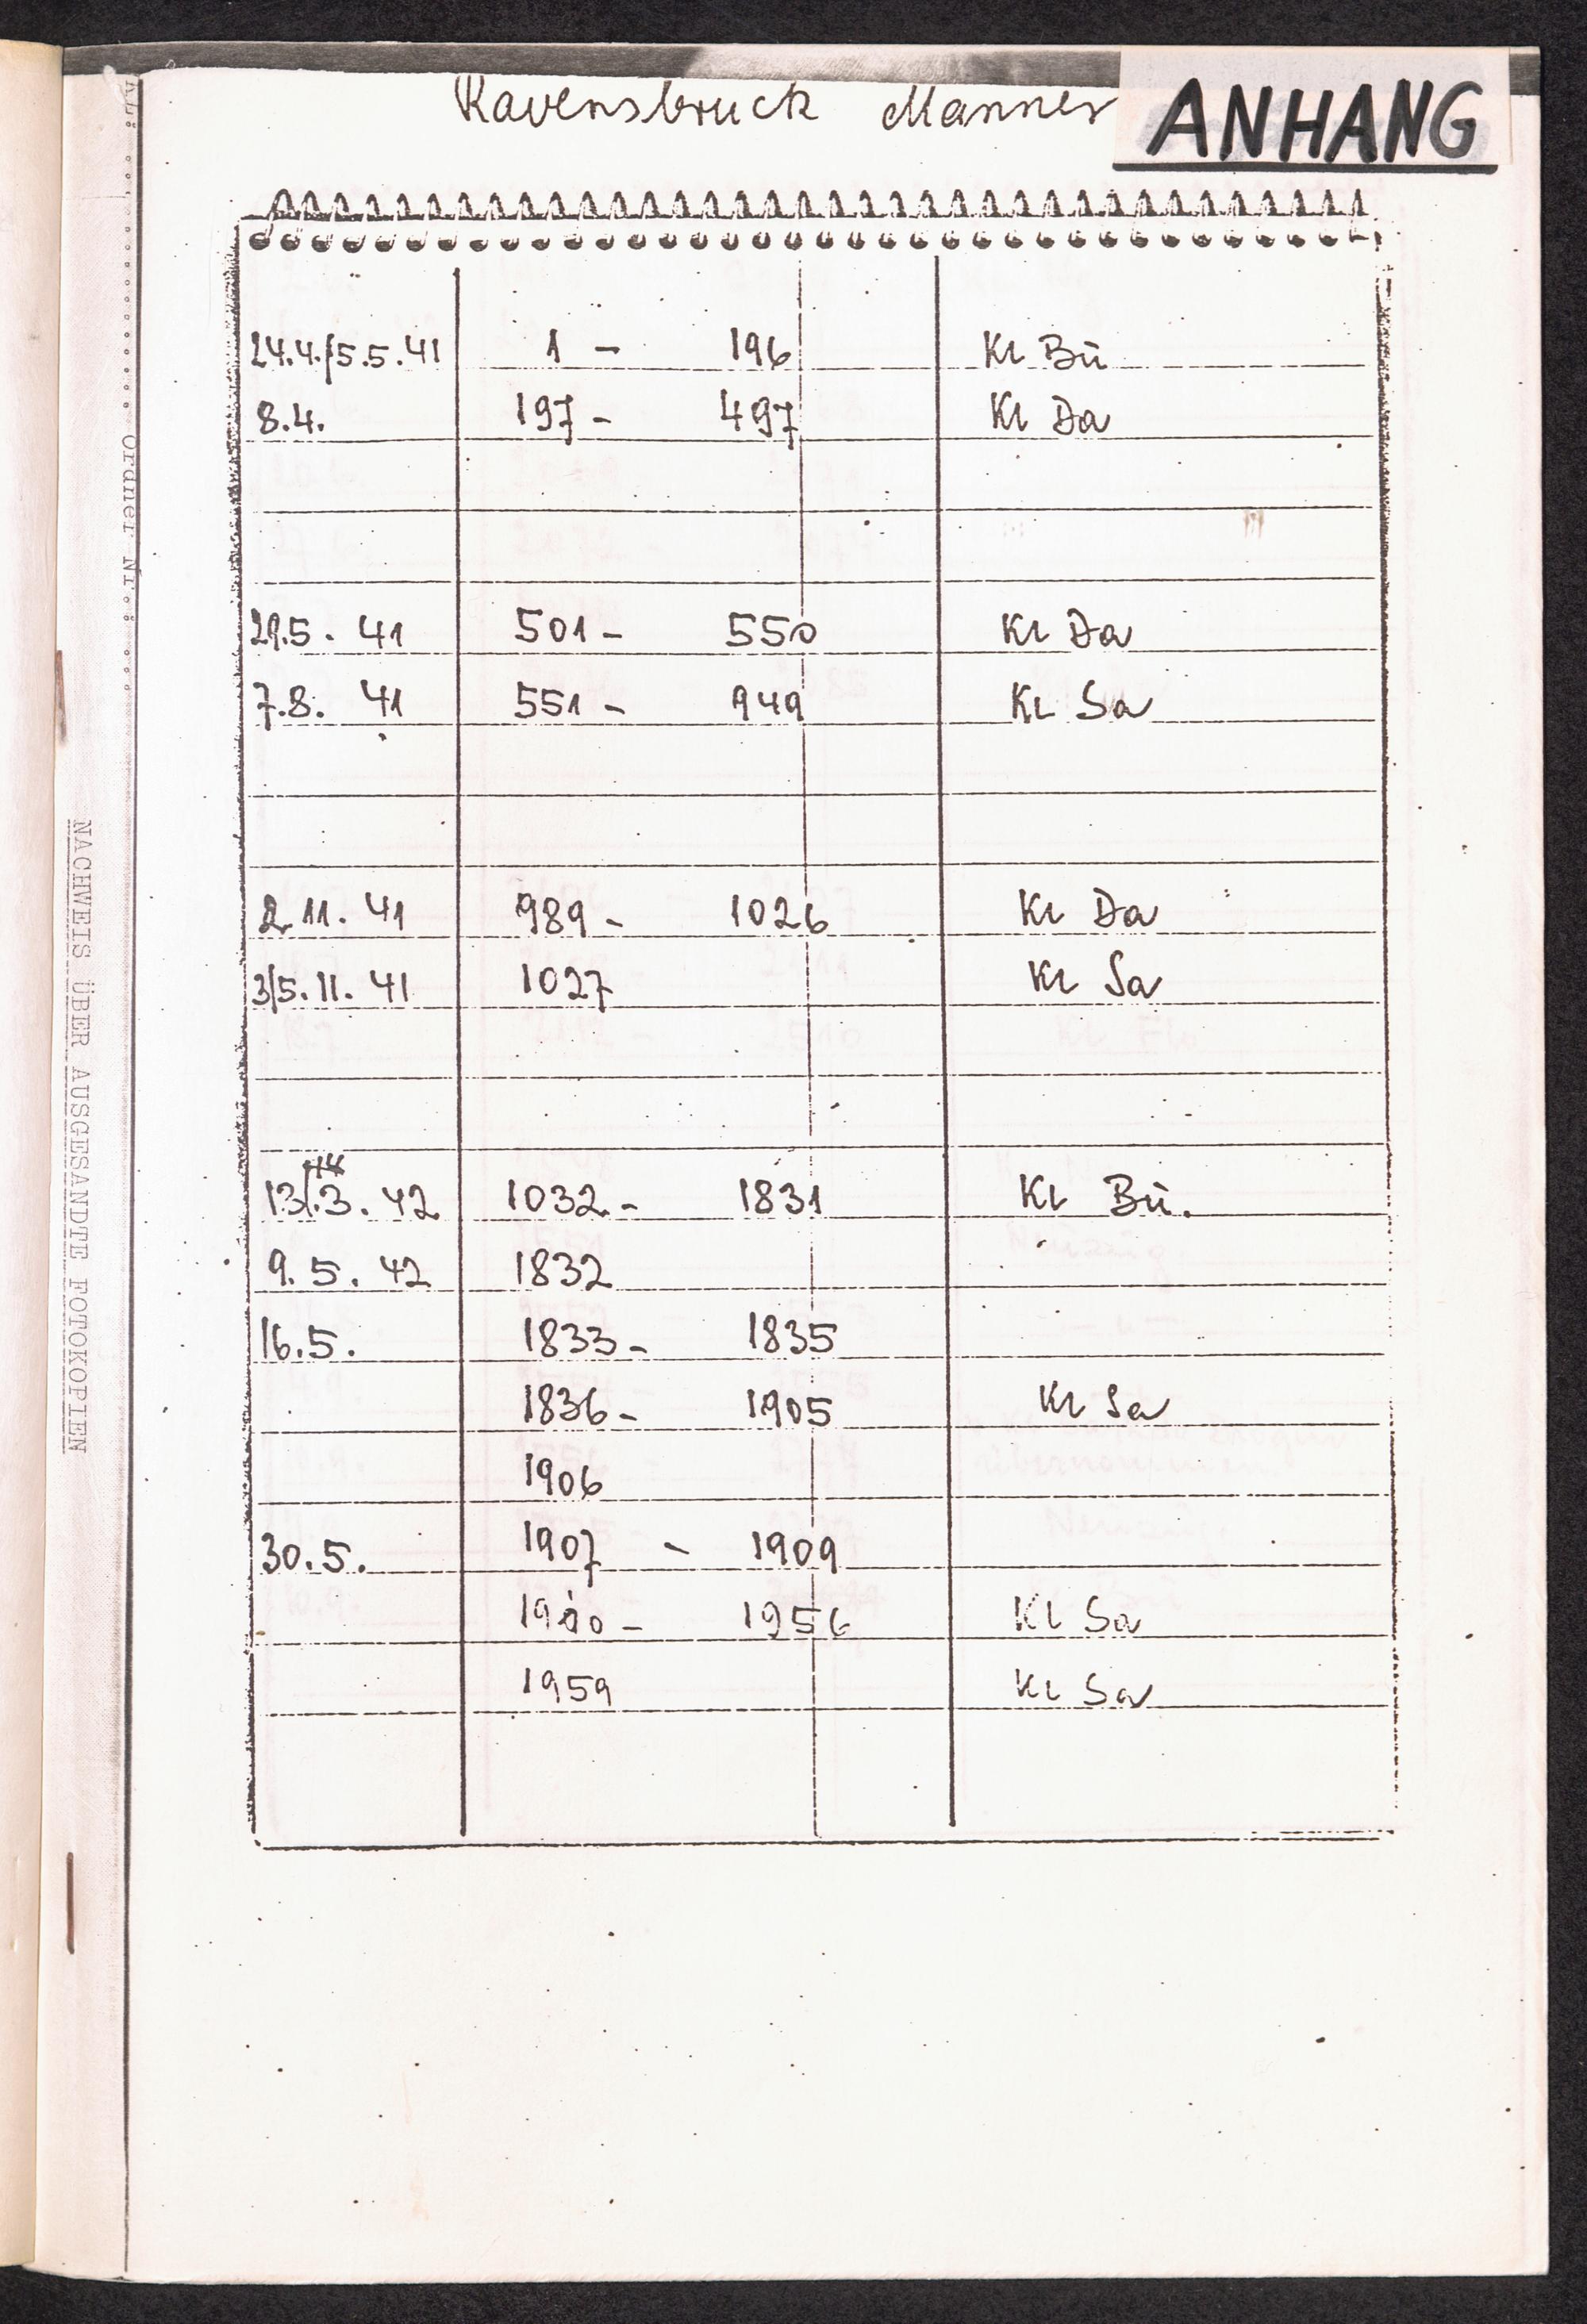 Ravensbruck Manner
ANHANG
24.4./5.5.41 1 - 196 KL Bü
8.4. 197 - 497 KL Da
29.5. 41 501 - 550 KL Da
7.8. 41 551 - 949 KL Sa
2.11. 41 989 - 1026 KL Da
3/5.11. 41 1027 KL Sa
13/.3. 42 1032 - 1831 KL Bü.
9.5. 42 1832
16.5. 1833 - 1835
1836 - 1905 KL Sa
1906
30.5. 1907 - 1909
1910 - 1956 KL Sa
1959 KL Sa
Ordner Nr.:
NACHWEIS ÜBER AUSGESANDTE FOTOKOPIEN